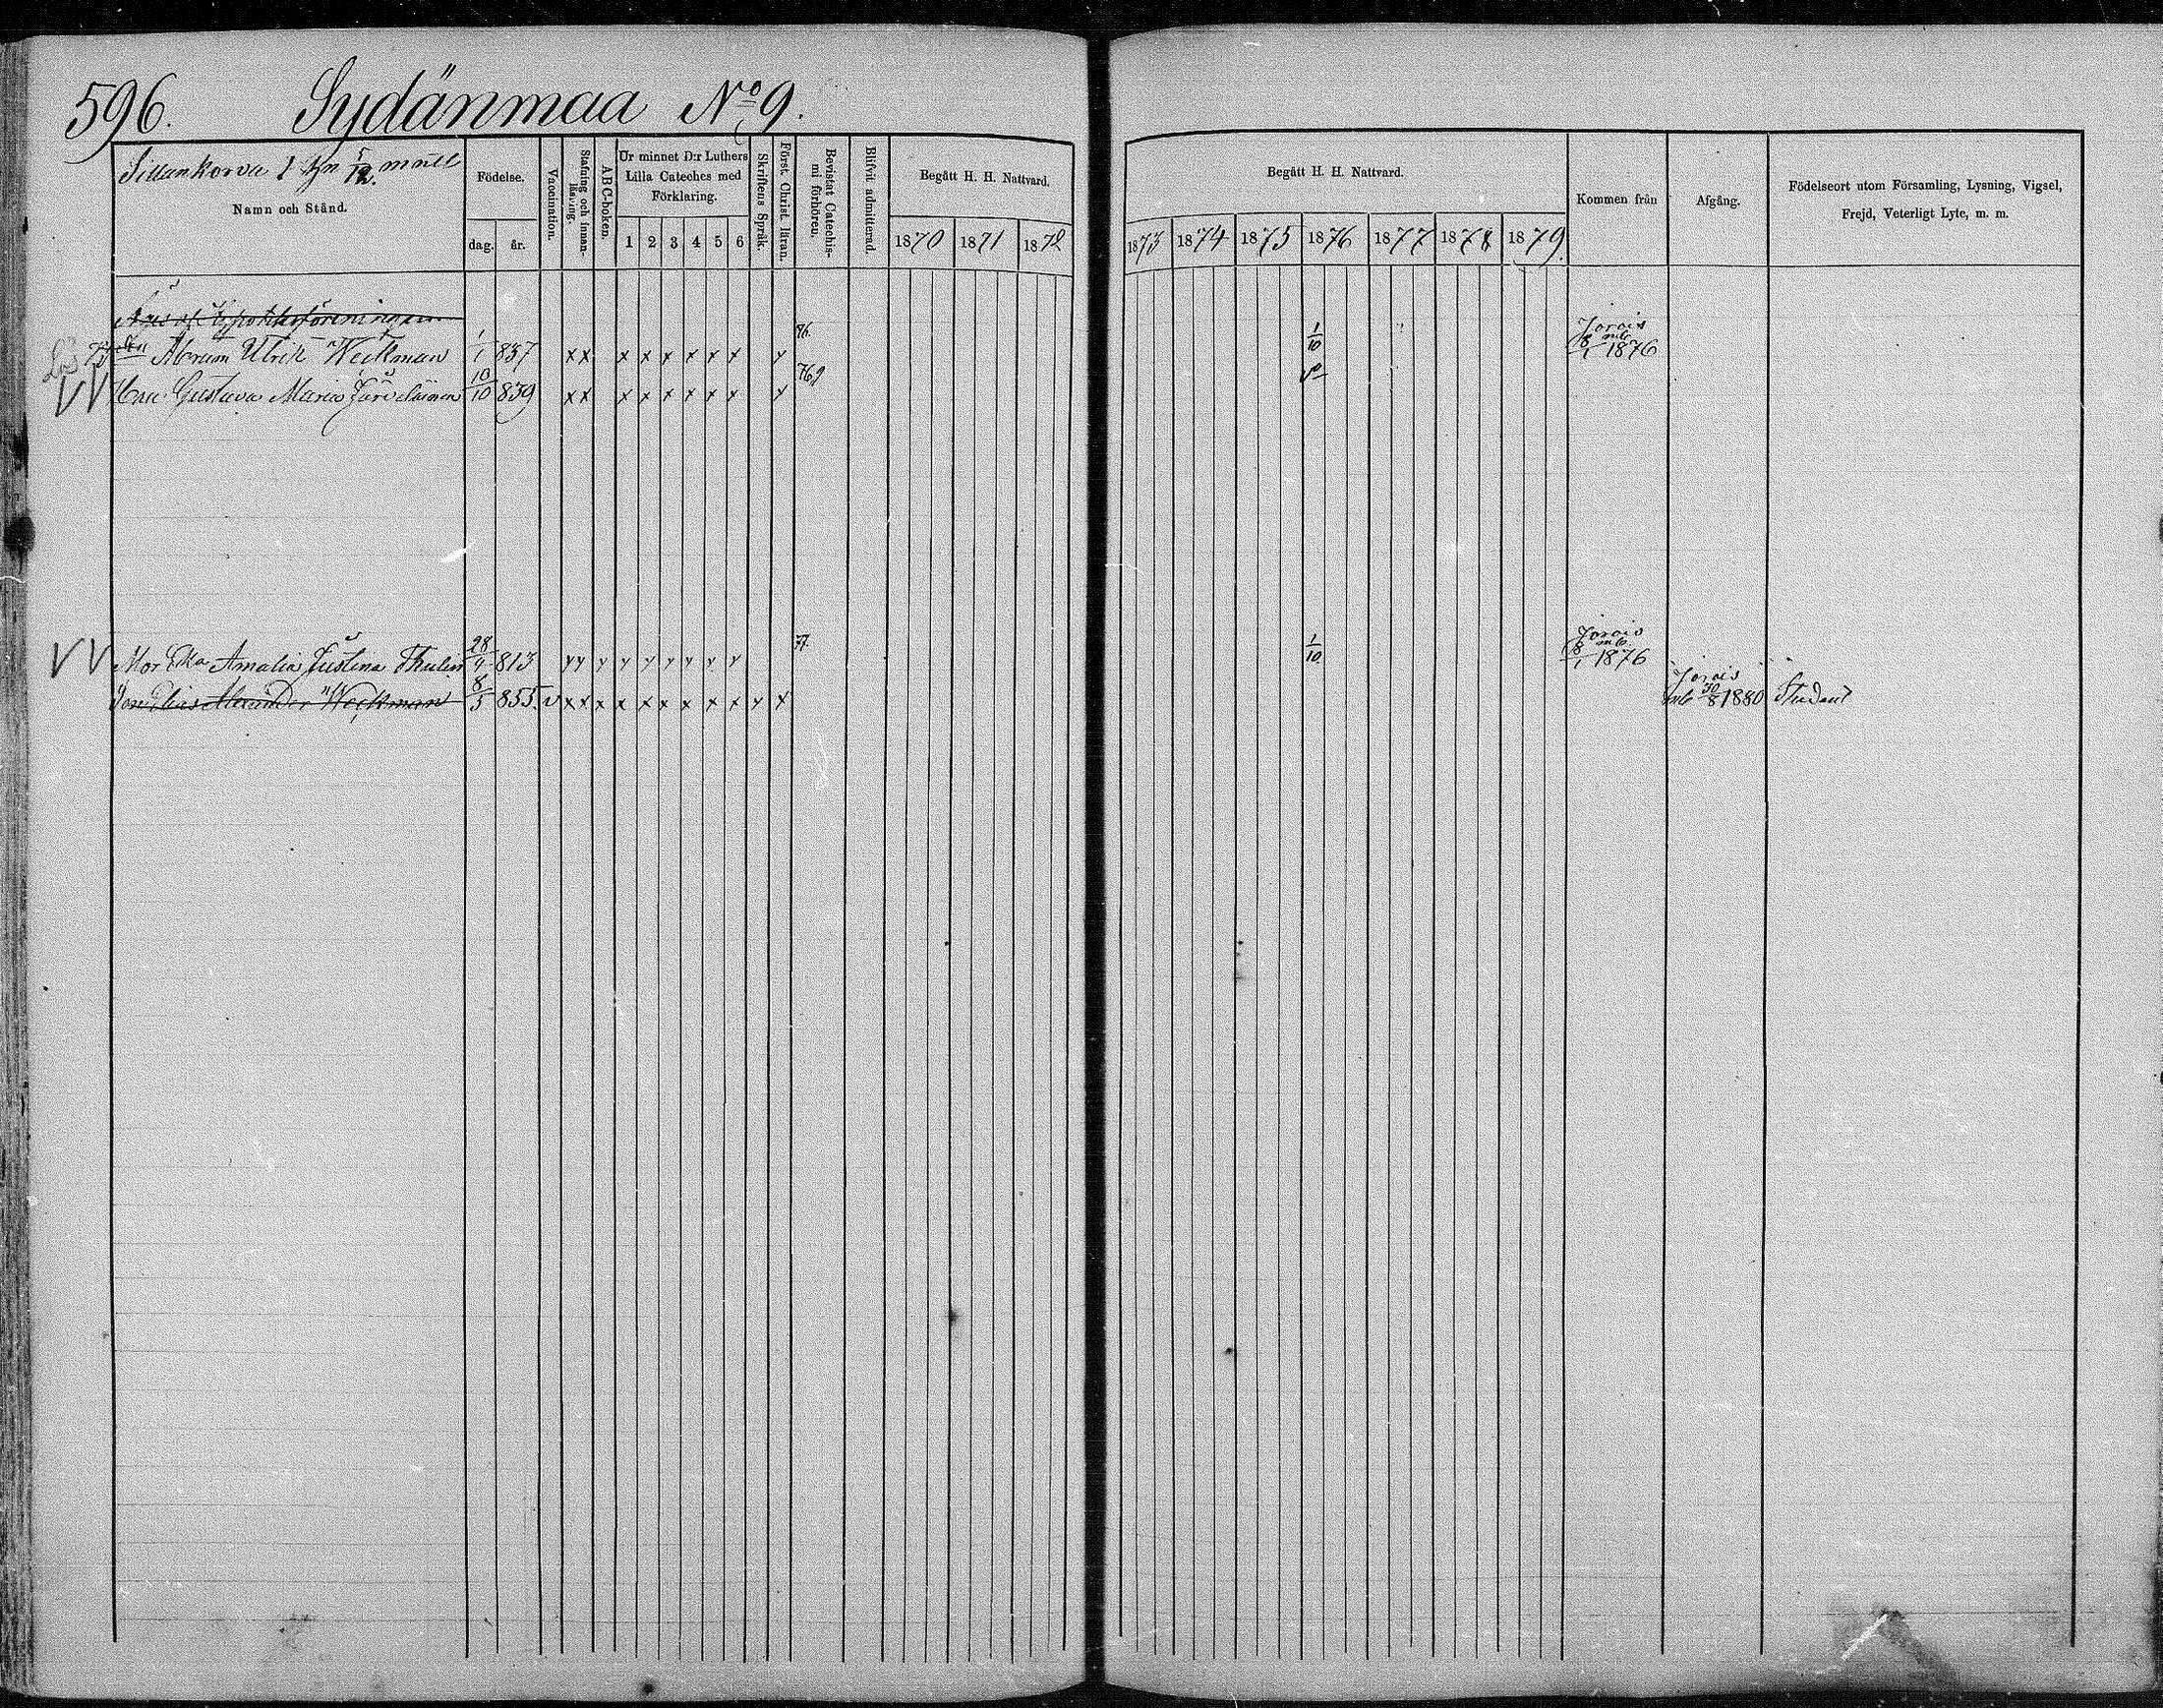 596. Sydänmaa No 9.
Sillankorva 1 hn 5/12 mntl
Namn och Stånd.
Födelse.
dag. år.
Vaccination.
Stafning och innanläsning.
ABC-boken.
Ur minnet D:r Luthers Lilla Cateches med Förklaring.
1 2 3 4 5 6
Skriftens Språk.
Först. Christ. läran.
Bevistat Catechismi förhören.
Blifvit admitterad.
Begått H. H. Nattvard.
1870 1871 1872
Begått H. H. Nattvard.
1873 1874 1875 1876 1877 1878 1879
Kommen från
Afgång.
Födelseort utom Församling, Lysning, Vigsel,
Frejd, Veterligt Lyte, m. m.
af Hypoteksföreningen
Abram Ulrik Weckman 1/1 837 x x x x x x x x x 76. 1/10 Jorois mb 8/1 1876
Gustava Maria Järveläinen 10/10 839 x x x x x x x x x 76,9
V V Mor Eka Amalia Justina Thulin 28/4 813 y y y y y y y y y 77. 1/10 Jorois mb 8/1 1876
Son Elias Alexander Weckman 8/5 855. v x x x x x x x x x x x Jorois mb 30/8 1880 Student